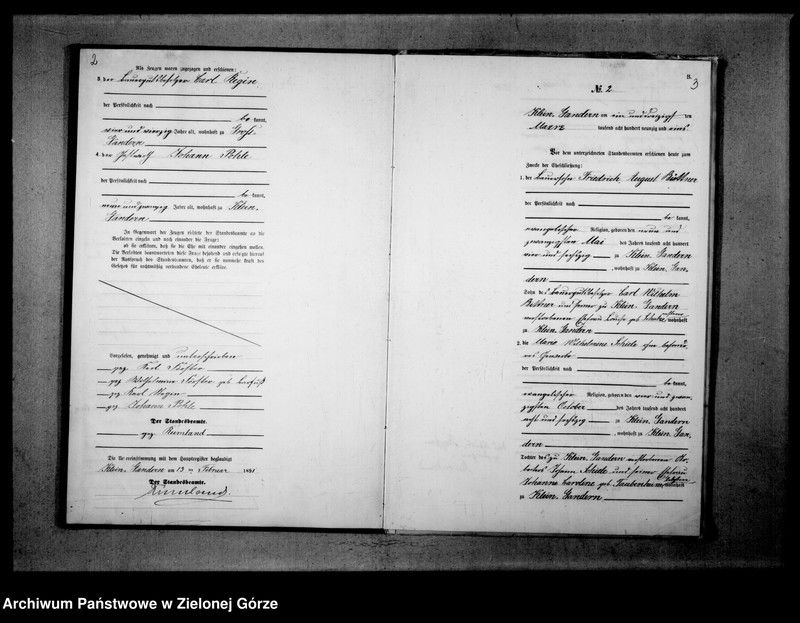 2
Als Zeugen waren zugezogen und erschienen:
3. der Bauergutsbesitzer Carl Regin
der Persönlichkeit nach
be kannt,
vier und vierzig Jahre alt, wohnhaft zu Gross-
Gandern
4. der Johann Pohle
der Persönlichkeit nach
be kannt,
neun und zwanzig Jahre alt, wohnhaft zu Klein-
Gandern
In Gegenwart der Zeugen richtete der Standesbeamte an die
Verlobten einzeln und nach einander die Frage:
ob sie erklären, daß sie die Ehe mit einander eingehen wollen.
Die Verlobten beantworteten diese Frage bejahend und erfolgte hierauf
der Ausspruch des Standesbeamten, daß er sie nunmehr kraft des
Gesetzes für rechtmäßig verbundene Eheleute erkläre.
Vorgelesen, genehmigt und unterschrieben
gez. Karl
gez. Wilhelmine geb.
gez. Karl Regin
gez. Johann Pohle
Der Standesbeamte.
gez. Rumland
Die Übereinstimmung mit dem Hauptregister beglaubigt
Klein-Gandern am 13ten Februar 1891
Der Standesbeamte.
Rumland.
B.
3
№ 2
Klein-Gandern am ein und zwanzigsten
Maerz tausend acht hundert neunzig und eins
Vor dem unterzeichneten Standesbeamten erschienen heute zum
Zwecke der Eheschließung:
1. der Bauersohn Friedrich August Büttner
der Persönlichkeit nach
be kannt,
evangelischer Religion, geboren den neun und
zwanzigsten Mai des Jahres tausend acht hundert
vier und sechzig zu Klein-Gandern
, wohnhaft zu Klein-Gan-
dern
Sohn des Bauergutsbesitzer Carl Wilhelm
Büttner und seiner zu Klein-Gandern
verstorbenen Ehefrau Louise geb. wohnhaft
zu Klein-Gandern
2. die Marie Wilhelmine Schulz ohne besonde-
res Gewerbe
der Persönlichkeit nach
be kannt,
evangelischer Religion, geboren den vier und zwan-
zigsten October des Jahres tausend acht hundert
acht und sechzig zu Klein-Gandern
, wohnhaft zu Klein-Gan-
dern
Tochter des zu Klein-Gandern verstorbenen Ar-
beiters Johann und seiner Ehefrau
Johanne Caroline geb. Taubenheim wohnhaft
zu Klein-Gandern
Archiwum Państwowe w Zielonej Górze